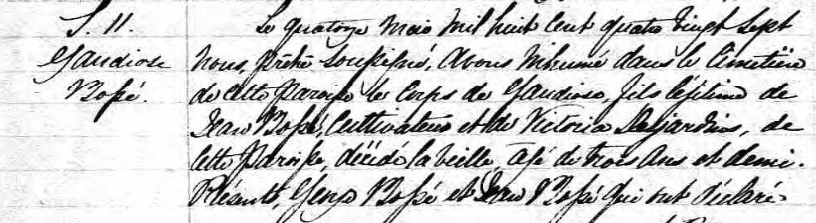 S. 11.
Gaudiose
Bossé.
Le quatorze Mai mil huit cent quatre vingt sept
nous, prêtre soussigné, avons inhumé dans le cimetière
de cette paroisse le corps de Gaudiose, fils légitime de
Jean Bossé, cultivateur et de Victoria Desjardins, de
cette paroisse, décédé la veille, agé de trois ans et demi.
Présents, Bossé et Jean Bossé qui ont déclaré